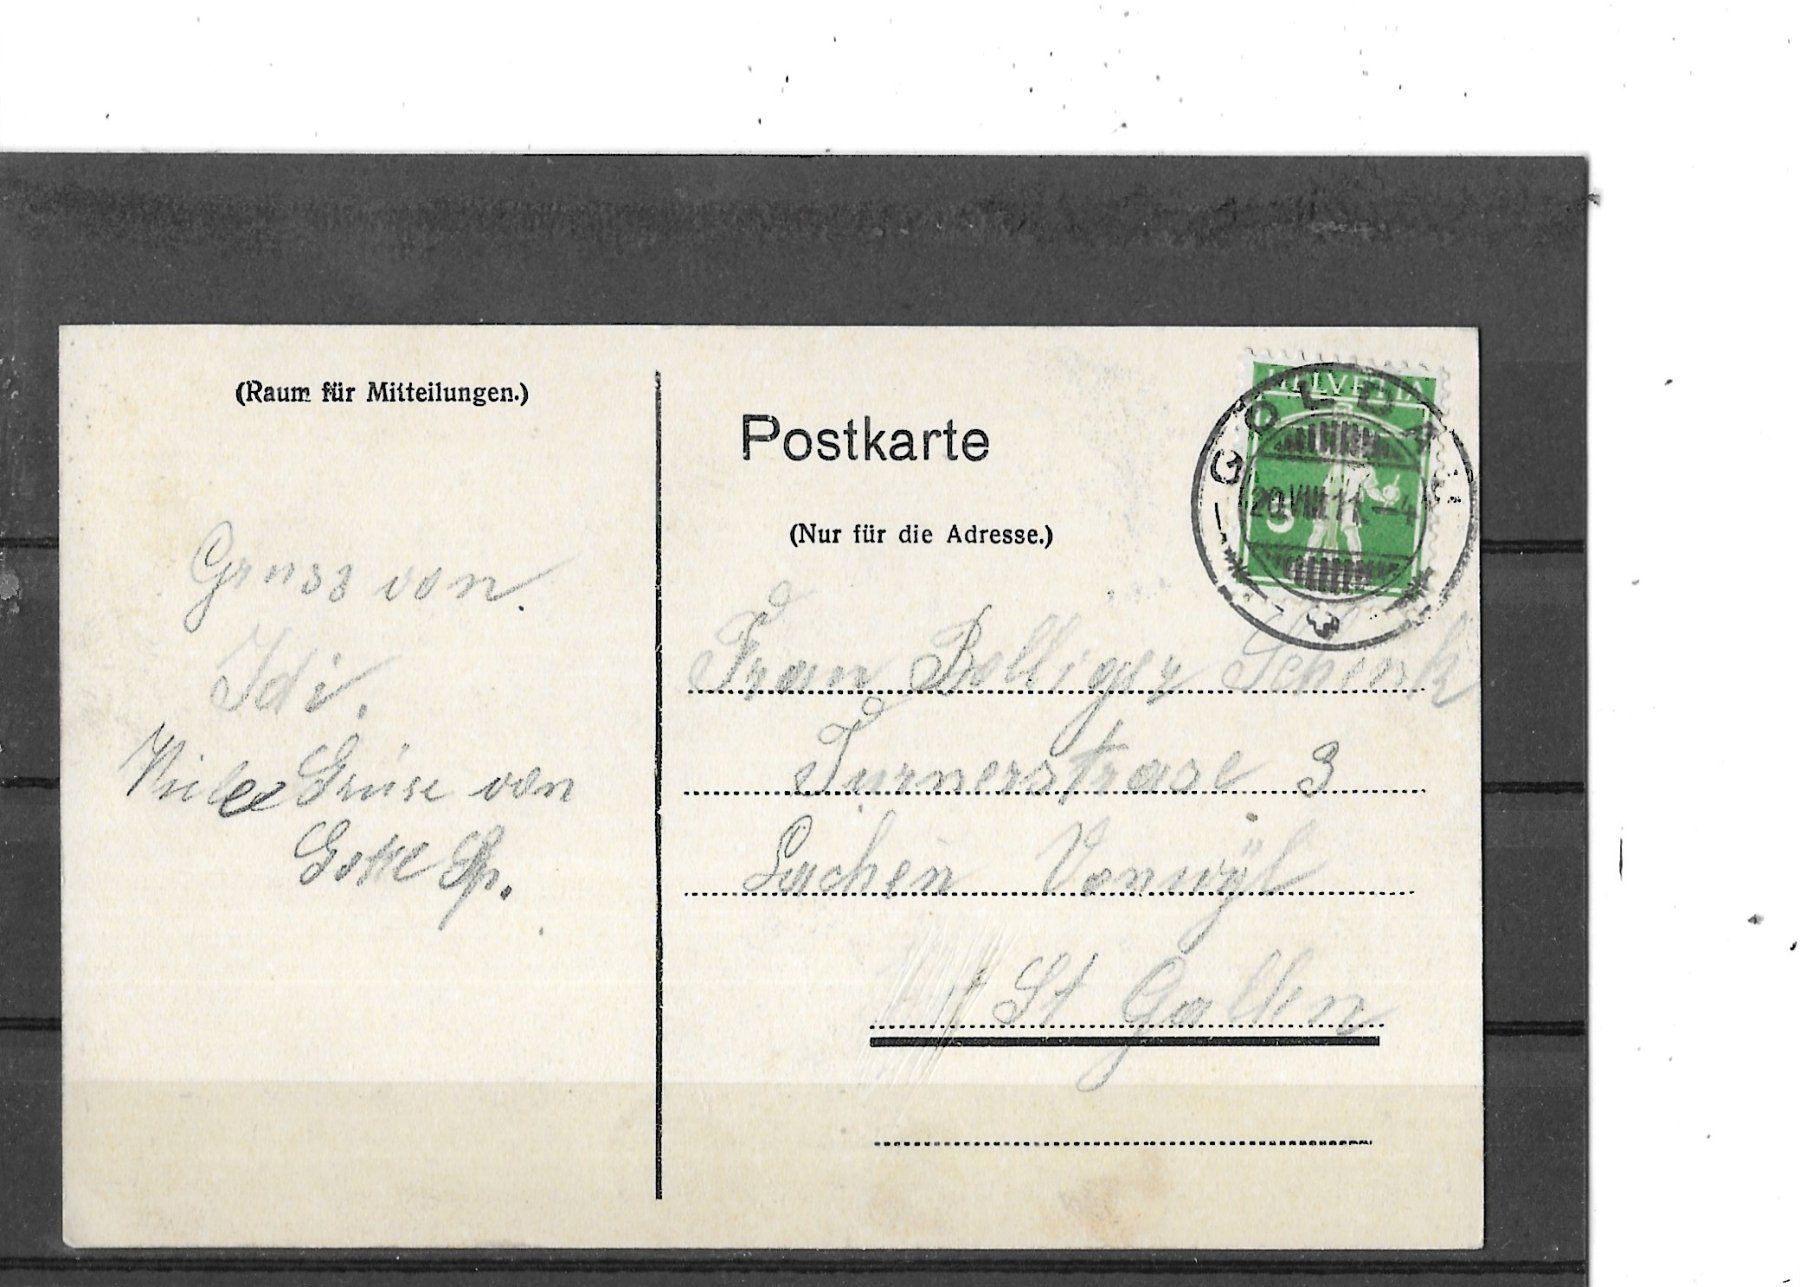 (Raum für Mitteilungen.)
Gruss von
Idi.
Viele Grüse von
Gotte Sp.
Postkarte
(Nur für die Adresse.)
HELVETIA
5
GOLDAU
20.VIII.11.–4
Frau Bolliger Schenk
Turnerstrase 3
Lachen Vonwÿl
St Gallen